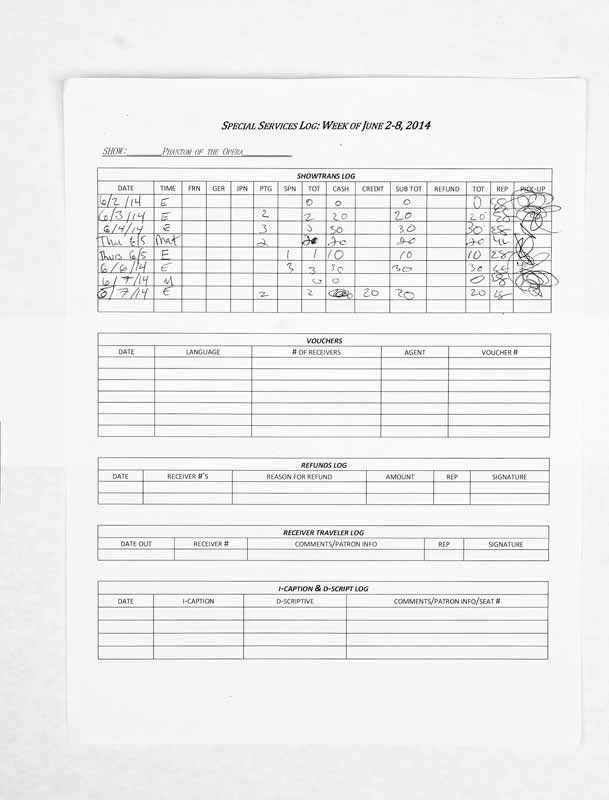 SPECIAL SERVICES LOG: WEEK OF JUNE 2-8, 2014
SHOW:________PHANTOM OF THE OPERA___________
SHOWTRANS LOG
DATE TIME FRN GER JPN PTG SPN TOT CASH CREDIT SUB TOT REFUND TOT REP PICK-UP
6/2/14 E 0 0 0 0
6/3/14 E 2 2 20 20 20
6/4/14 E 3 3 30 30 30 28
Thu 6/5 Mat 2 20 20 20
Thurs 6/5 E 1 1 10 10 10 28
6/6/14 E 3 3 30 30 30
6/7/14 M 0 0 0
6/7/14 E 2 2 20 20 20
VOUCHERS
DATE LANGUAGE # OF RECEIVERS AGENT VOUCHER #
REFUNDS LOG
DATE RECEIVER #'S REASON FOR REFUND AMOUNT REP SIGNATURE
RECEIVER TRAVELER LOG
DATE OUT RECEIVER # COMMENTS/PATRON INFO REP SIGNATURE
I-CAPTION & D-SCRIPT LOG
DATE I-CAPTION D-SCRIPTIVE COMMENTS/PATRON INFO/SEAT #